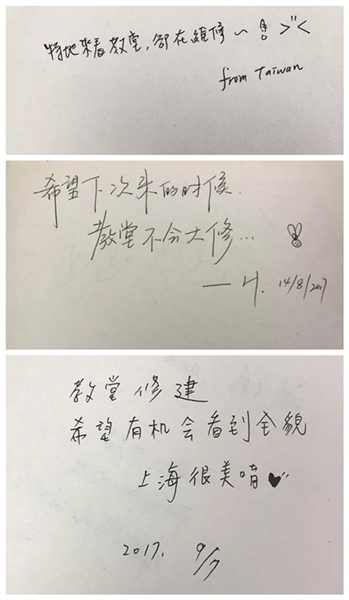 特地來看教堂,卻在維修~ ! >"<
from Taiwan
希望下次来的时候.
教堂不会大修...
— H. 14/8/2017
教堂修建
希望有机会看到全貌
上海很美唷♥
2017. 9/7